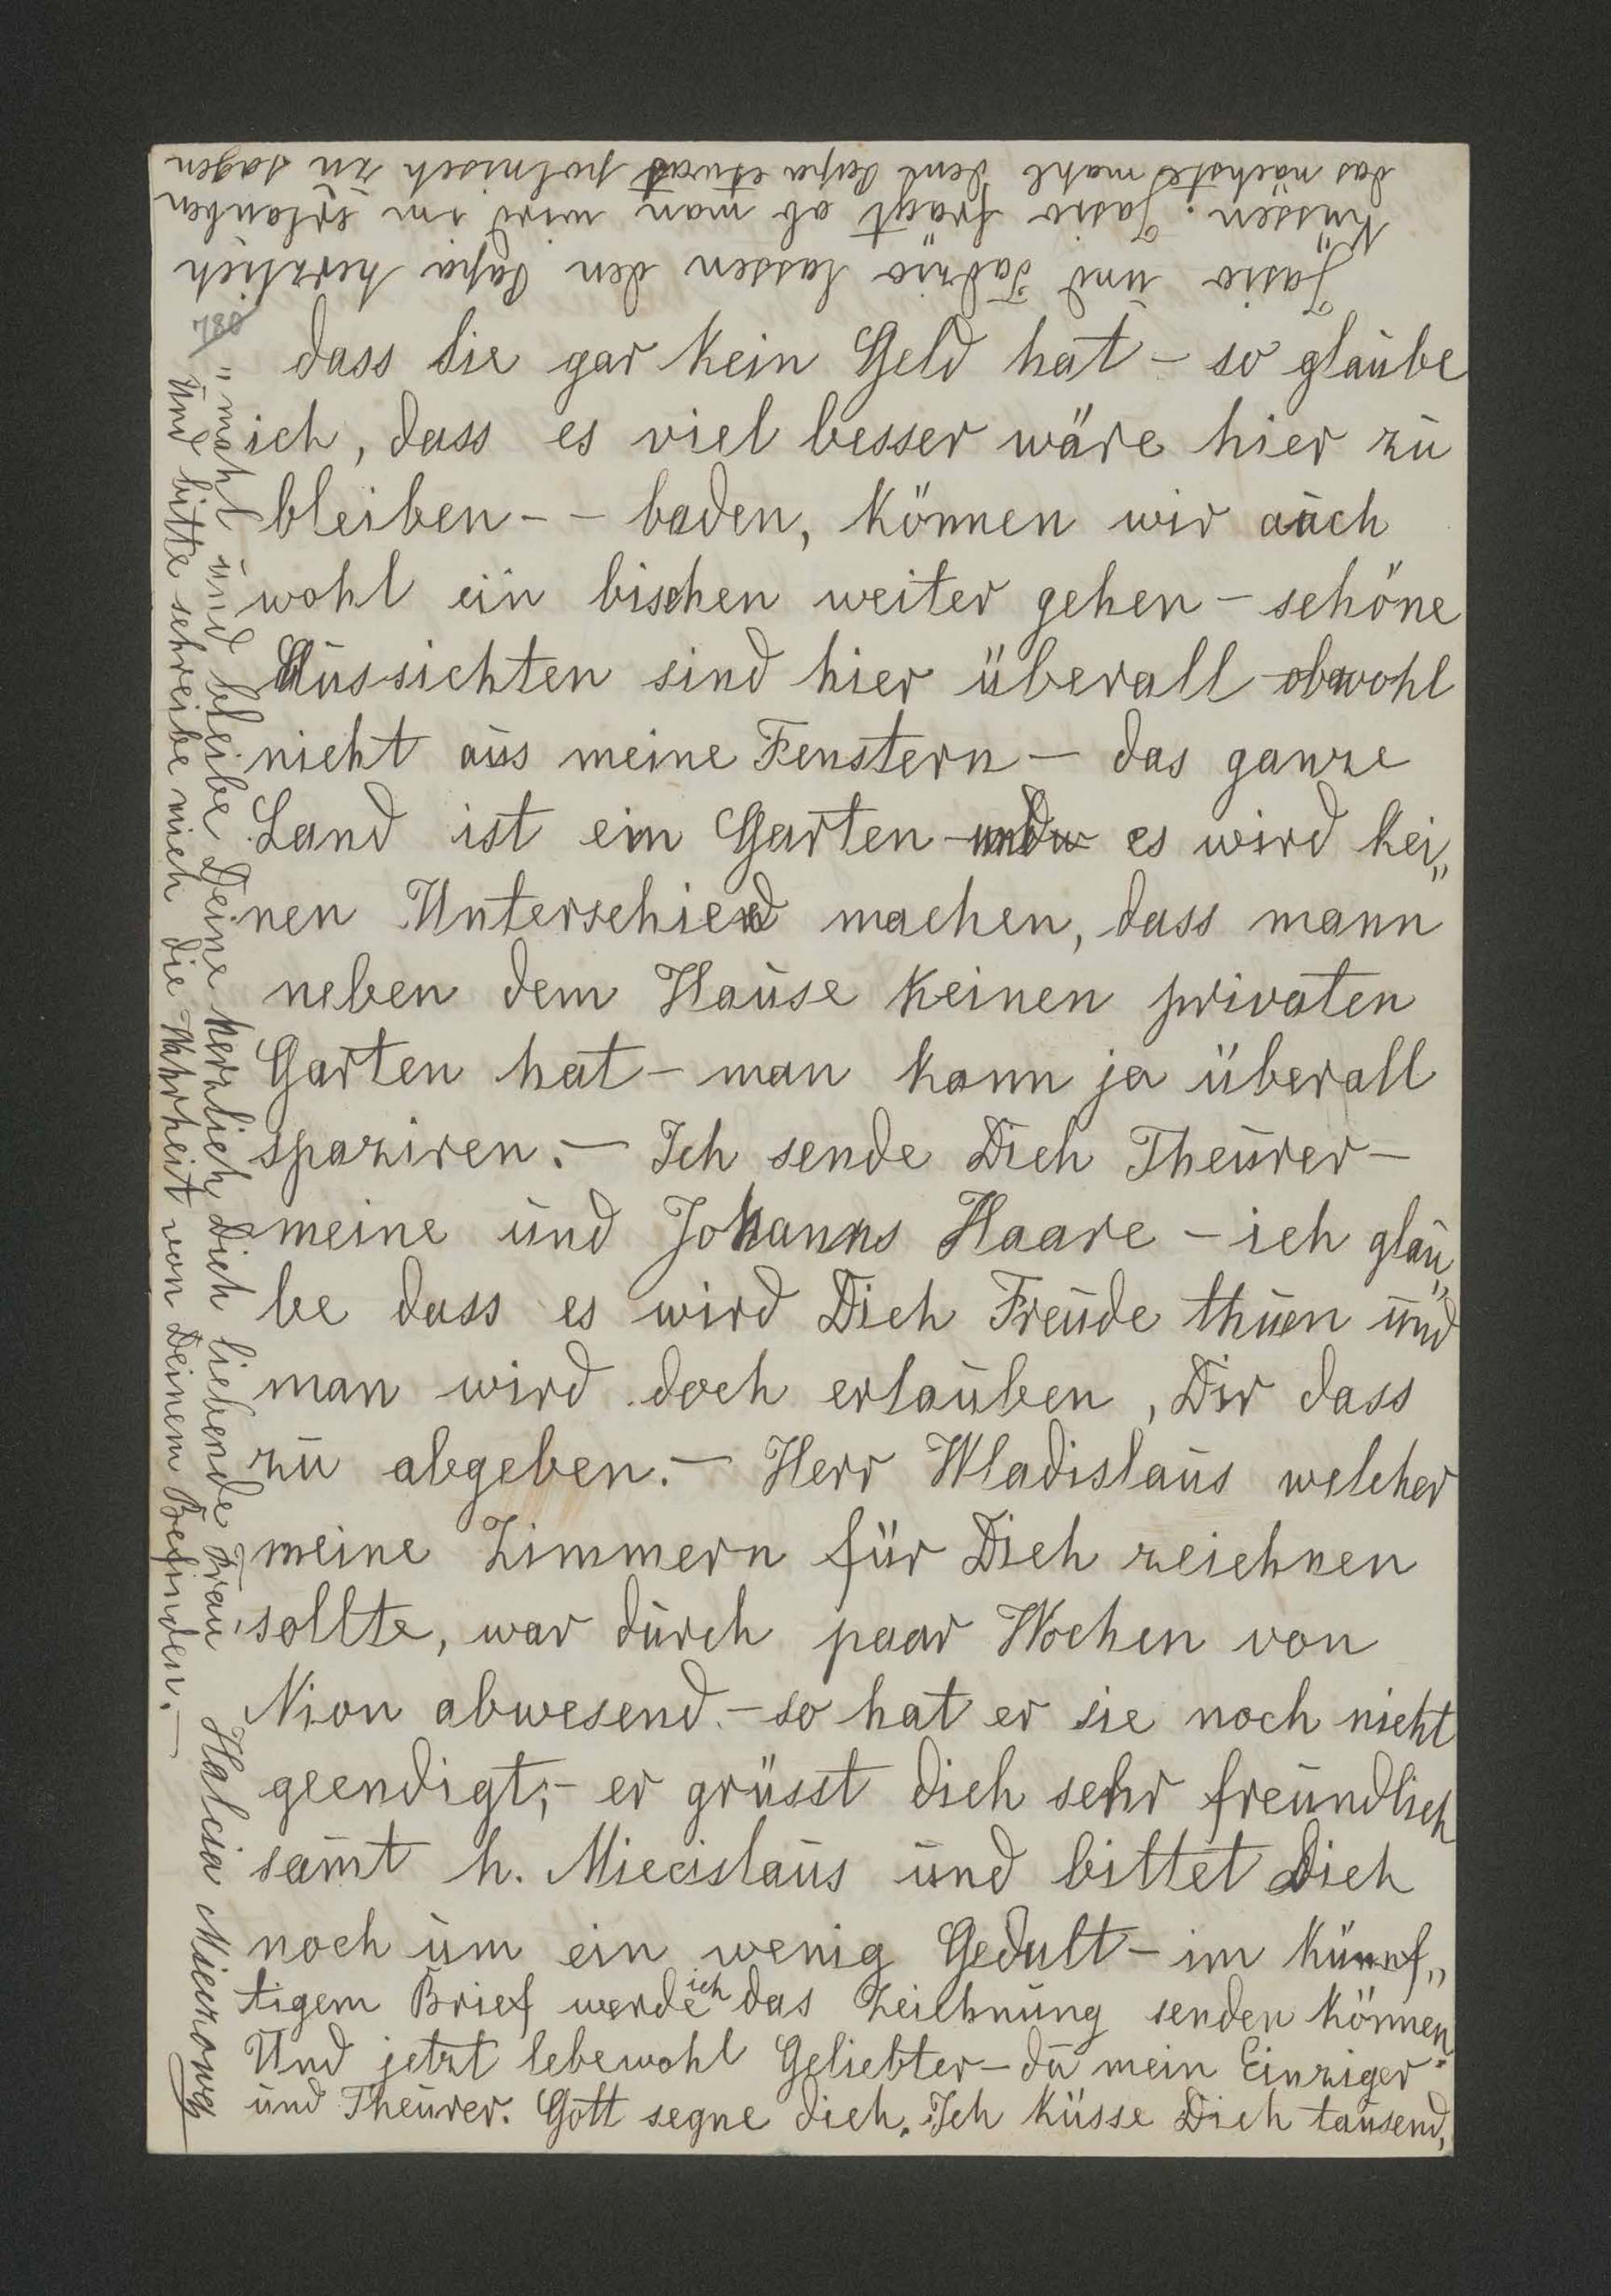 dass sie gar kein Geld hat – so glaube
ich, dass es viel besser wäre hier zu
bleiben - – baden, können wir auch
wohl ein bischen weiter gehen – schöne
Aussichten sind hier überall obwohl
nicht aus meine Fenstern – das ganze
Land ist ein Garten – es wird kei„
nen Unterschied machen, dass mann
neben dem Hause keinen privaten
Garten hat – man kann ja überall
spaziren. – Ich sende Dich Theurer –
meine und Johanns Haare – ich glau„
be dass es wird Dich Freude thuen und
man wird doch erlauben, Dir dass
zu abgeben. – Herr Wladislaus welcher
meine Zimmern für Dich zeichnen
sollte, war durch paar Wochen von
Nion abwesend. – so hat er sie noch nicht
geendigt; – er grüsst dich sehr freundlich
samt h. Miecislaus und bittet Dich
noch um ein wenig Gedult – im künf„
tigem Brief werde ich das Zeichnung senden können.
Und jetzt lebewohl Geliebter – du mein Einziger
und Theurer. Gott segne dich. Ich küsse Dich tausend„
„mahl und bleibe Deine herzlich Dich liebende Frau Halcia Mieczowa
Und bitte schreibe mich die Wahrheit von Deinem Befinden. –
Jasio und Tadzio lassen den Papa herzlich
küssen. Jasio frägt ob man wird im erlauben
das nächste mahl dem Papa etwas polnisch zu sagen
780